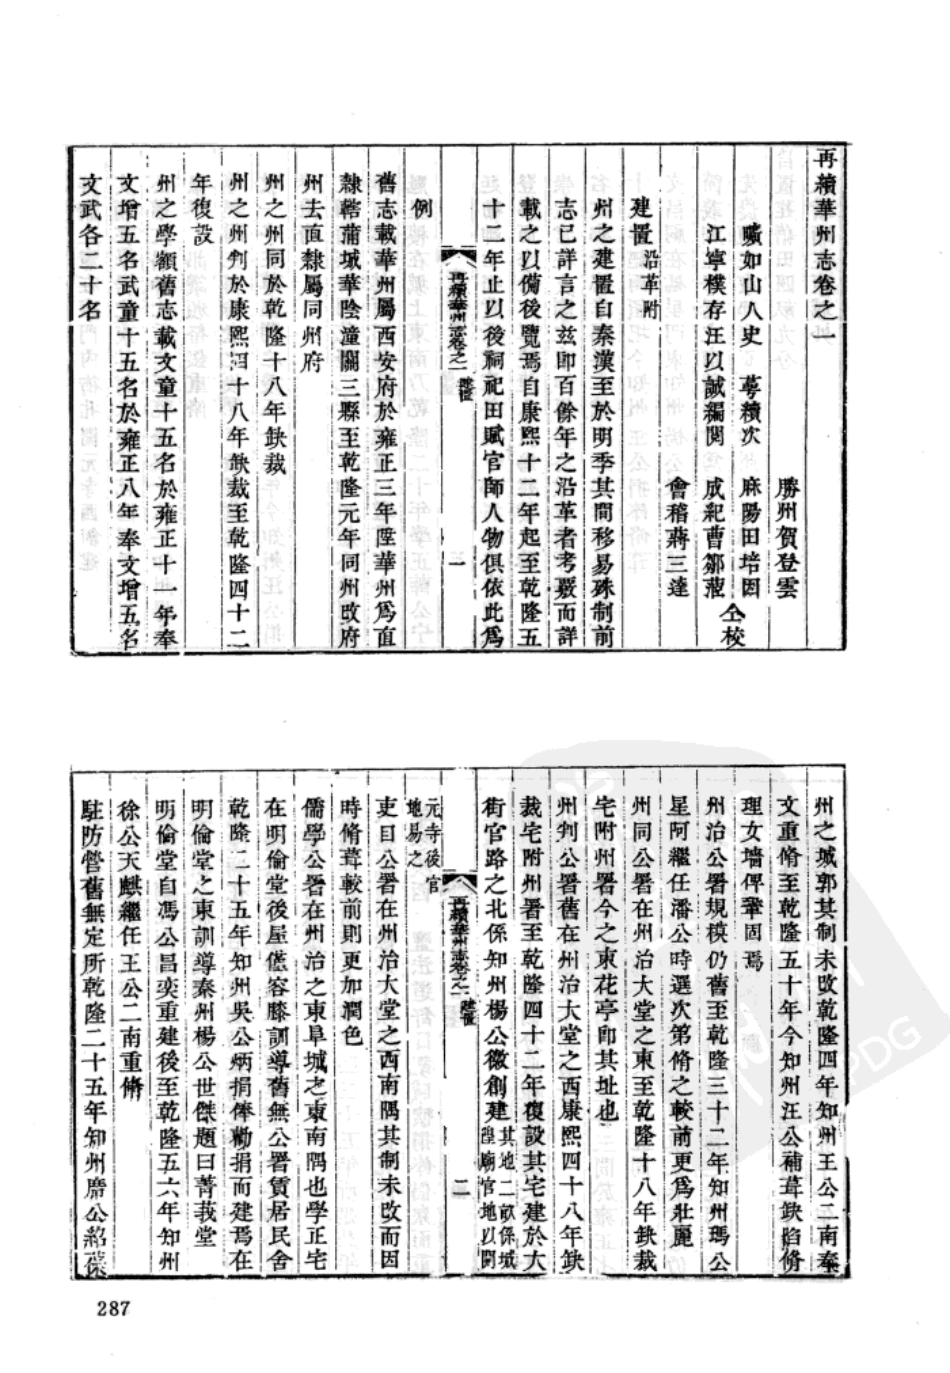 再續華州志卷之一
勝州賀登雲
曠如山人史　萼續次　麻陽田培因
江寧樸存汪以誠編閱　成紀曹鄒　仝校
會稽蔣三達
建置 沿革附
州之建置自秦漢至於明季其間移易殊制前
志已詳言之茲即百餘年之沿革者考覈而詳
載之以備後覽焉自康熙十二年起至乾隆五
十二年止以後祠祀田賦官師人物俱依此爲
再續華州志卷之一 建置 一
例
舊志載華州屬西安府於雍正三年陞華州爲直
隸轄蒲城華陰潼關三縣至乾隆元年同州改府
州去直隸屬同州府
州之州同於乾隆十八年缺裁
州之州判於康熙四十八年缺裁至乾隆四十二
年復設
州之學額舊志載文童十五名於雍正十一年奉
文增五名武童十五名於雍正八年奉文增五名
文武各二十名
州之城郭其制未改乾隆四年知州王公二南奉
文重脩至乾隆五十年今知州汪公補葺缺陷脩
理女墻俾鞏固焉
州治公署規模仍舊至乾隆三十二年知州瑪公
星阿繼任潘公時選次第脩之較前更爲壯麗
州同公署在州治大堂之東至乾隆十八年缺裁
宅附州署今之東花亭即其址也
州判公署舊在州治大堂之西康熙四十八年缺
裁宅附州署至乾隆四十二年復設其宅建於大
街官路之北係知州楊公徽創建 其地二畝係城隍廟官地以開
再續華州志卷之一 建置 二
元寺後官地易之
吏目公署在州治大堂之西南隅其制未改而因
時脩葺較前則更加潤色
儒學公署在州治之東阜城之東南隅也學正宅
在明倫堂後屋僅容膝訓導舊無公署賃居民舍
乾隆二十五年知州吳公炳捐俸勸捐而建焉在
明倫堂之東訓導秦州楊公世傑題曰菁莪堂
明倫堂自馮公昌奕重建後至乾隆五六年知州
徐公天麒繼任王公二南重脩
駐防營舊無定所乾隆二十五年知州席公紹葆
287